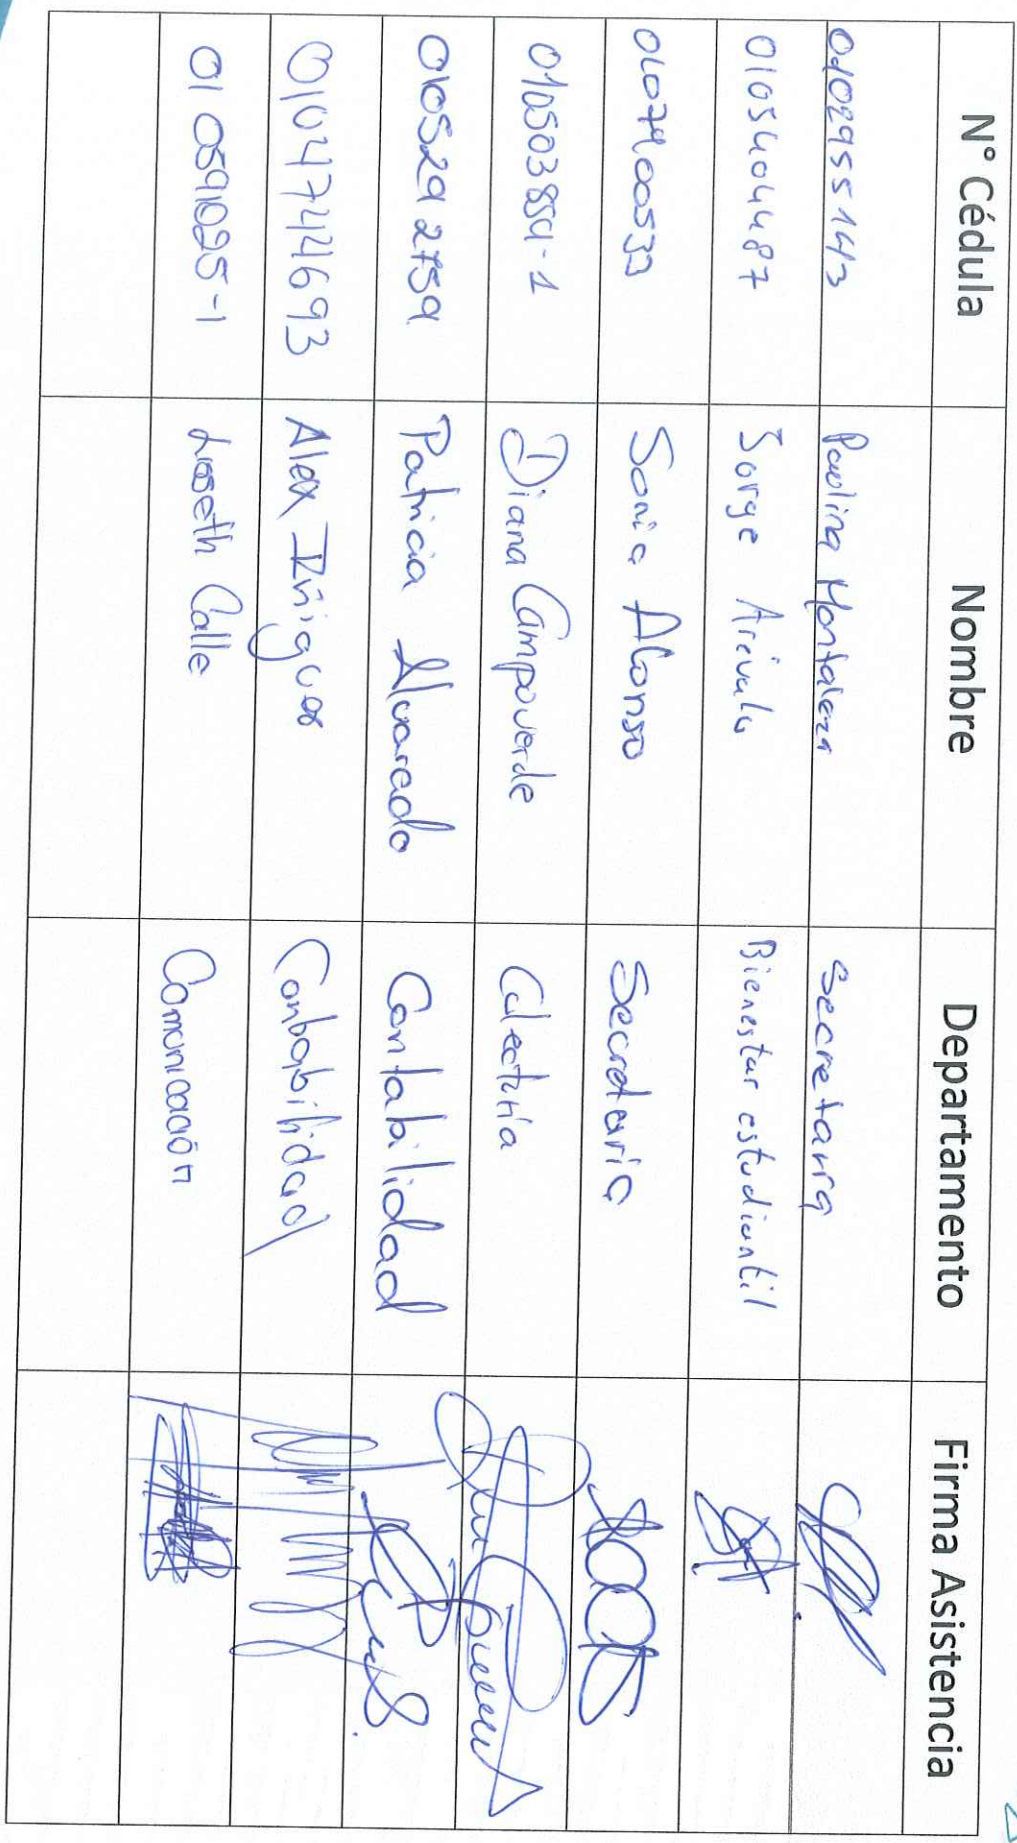 N° Cédula Nombre Departamento Firma Asistencia
0102955143 Paulina Montaleza Secretaria
0105404487 Jorge Arévalo Bienestar estudiantil
Sonia Alonso Secretaria
010503859-1 Diana Campoverde Colecturía
0105292759 Patricia Alvarado Contabilidad
0104774693 Alex Iñiguez Contabilidad
010591025-1 Lisseth Calle Comunicación